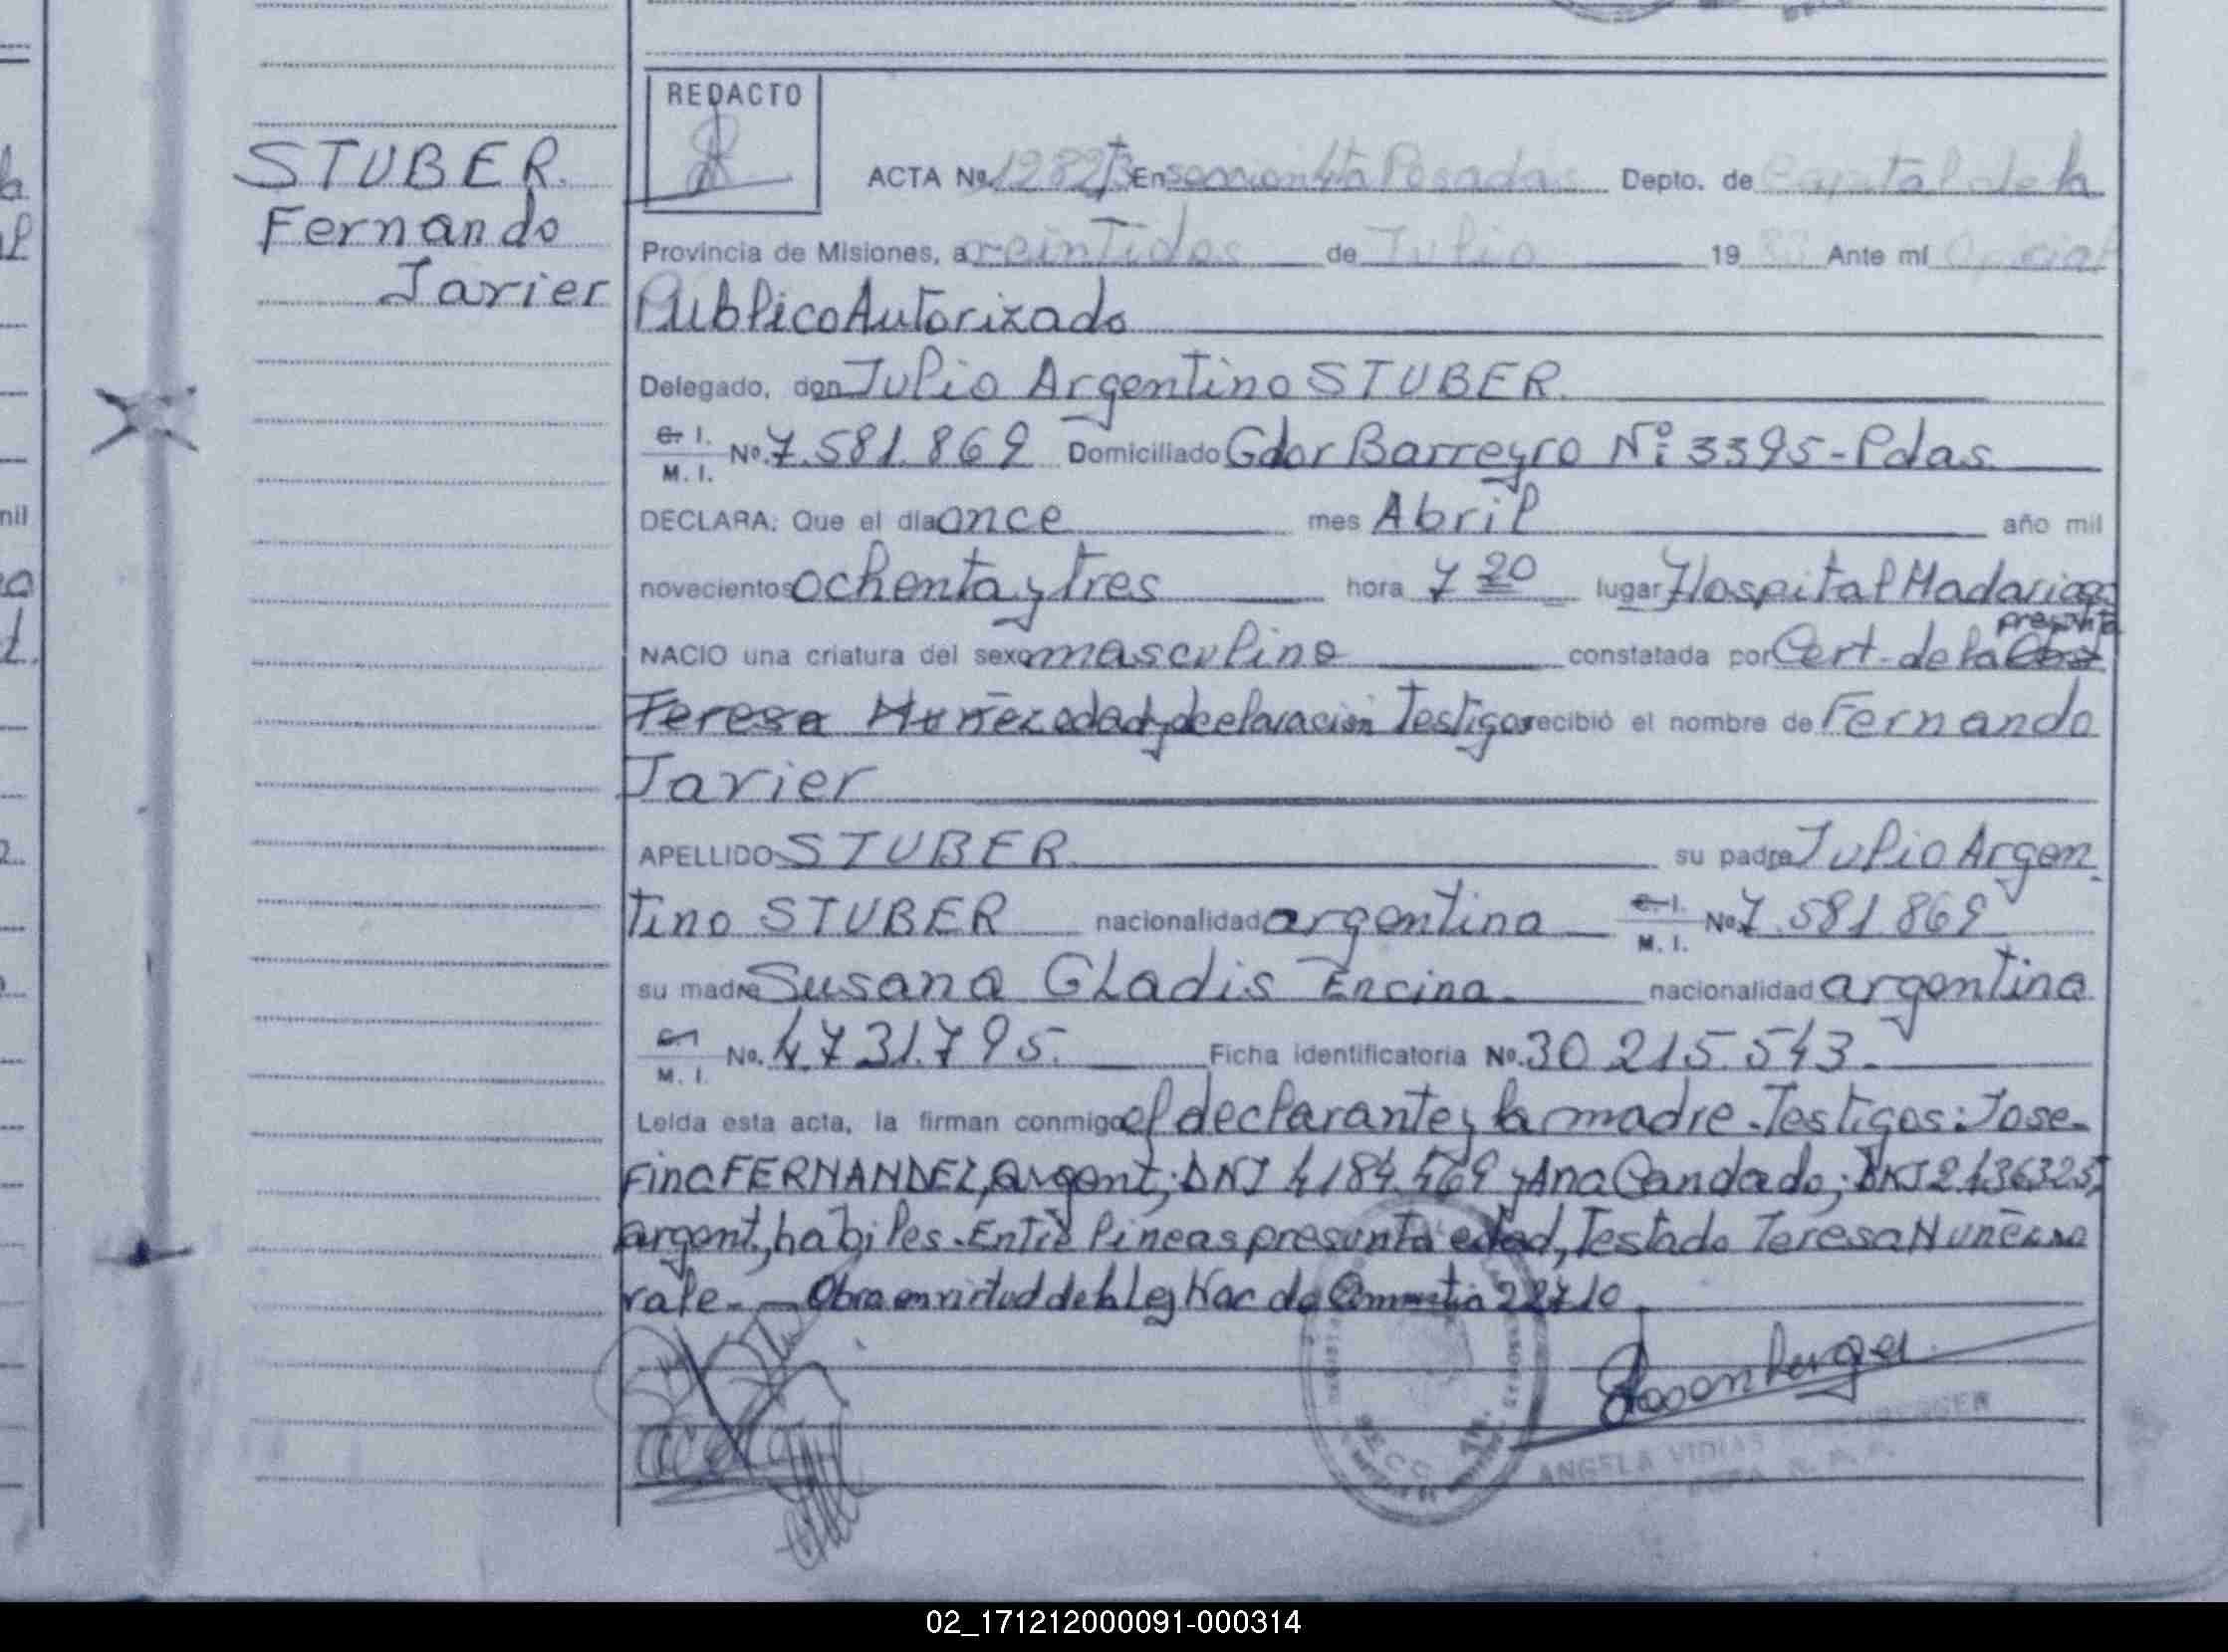 REDACTO
STUBER.
Fernando
Javier
ACTA Nº 1282 En sección 4ta Posadas Depto. de Capital de la
Provincia de Misiones, a veintidos de Julio 19 83 Ante mí Oficial
Publico Autorizado
Delegado, don Julio Argentino STUBER.
C. I. / M. I. Nº. 7.581.869 Domiciliado Gdor Barreyro Nº: 3395-Pdas.
DECLARA: Que el día once mes Abril año mil
novecientos ochenta y tres hora 7 20 lugar Hospital Madariaga
presunta
NACIO una criatura del sexo masculino constatada por Cert- de la
Teresa Nuñez edad y declaración Testigos recibió el nombre de Fernando
Javier
APELLIDO STUBER. su padre Julio Argen
tino STUBER nacionalidad argentina C. I. / M. I. Nº. 7.581.869
su madre Susana GLadis Encina. nacionalidad argentina
M. I. No. 4.731.795. Ficha identificatoria Nº. 30.215.543.
Leída esta acta, la firman conmigo el declarante y la madre. Testigos: Jose-
fina FERNANDEZ, argent; DNI 4184.569 y Ana Candado; DNI 2.436.325,
argent, habiles. Entre lineas presunta edad, Testado Teresa Nuñez no
vale. - Obra en virtud de la Ley Nac de Amnistia 22710
Rosemberger
ANGELA VIDIAS
SECC. 4ta.
02_171212000091-000314